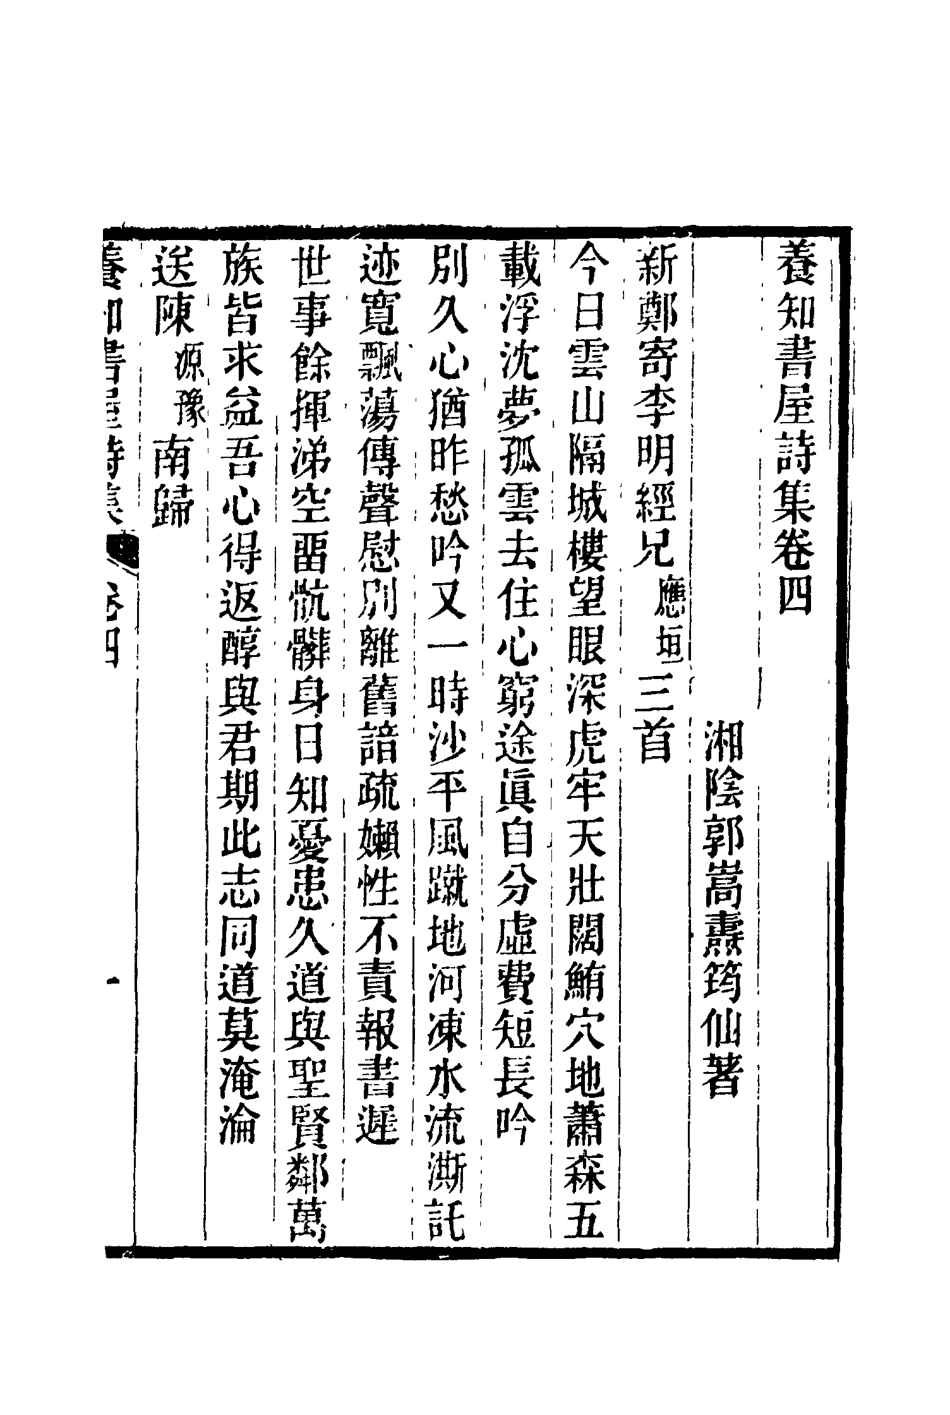 養知書屋詩集卷四
湘陰郭嵩燾筠仙著
新鄭寄李明經兄應垣三首
今日雲山隔城樓望眼深虎牢天壯闊鮪穴地蕭森五
載浮沈夢孤雲去住心窮途眞自分虛費短長吟
別久心猶昨愁吟又一時沙平風蹴地河凍水流澌託
迹寬飄蕩傳聲慰別離舊諳疏嬾性不責報書遲
世事餘揮涕空畱骯髒身日知憂患久道與聖賢鄰萬
族皆求益吾心得返醇與君期此志同道莫淹淪
送陳源豫南歸
養知書屋詩集 卷四 一